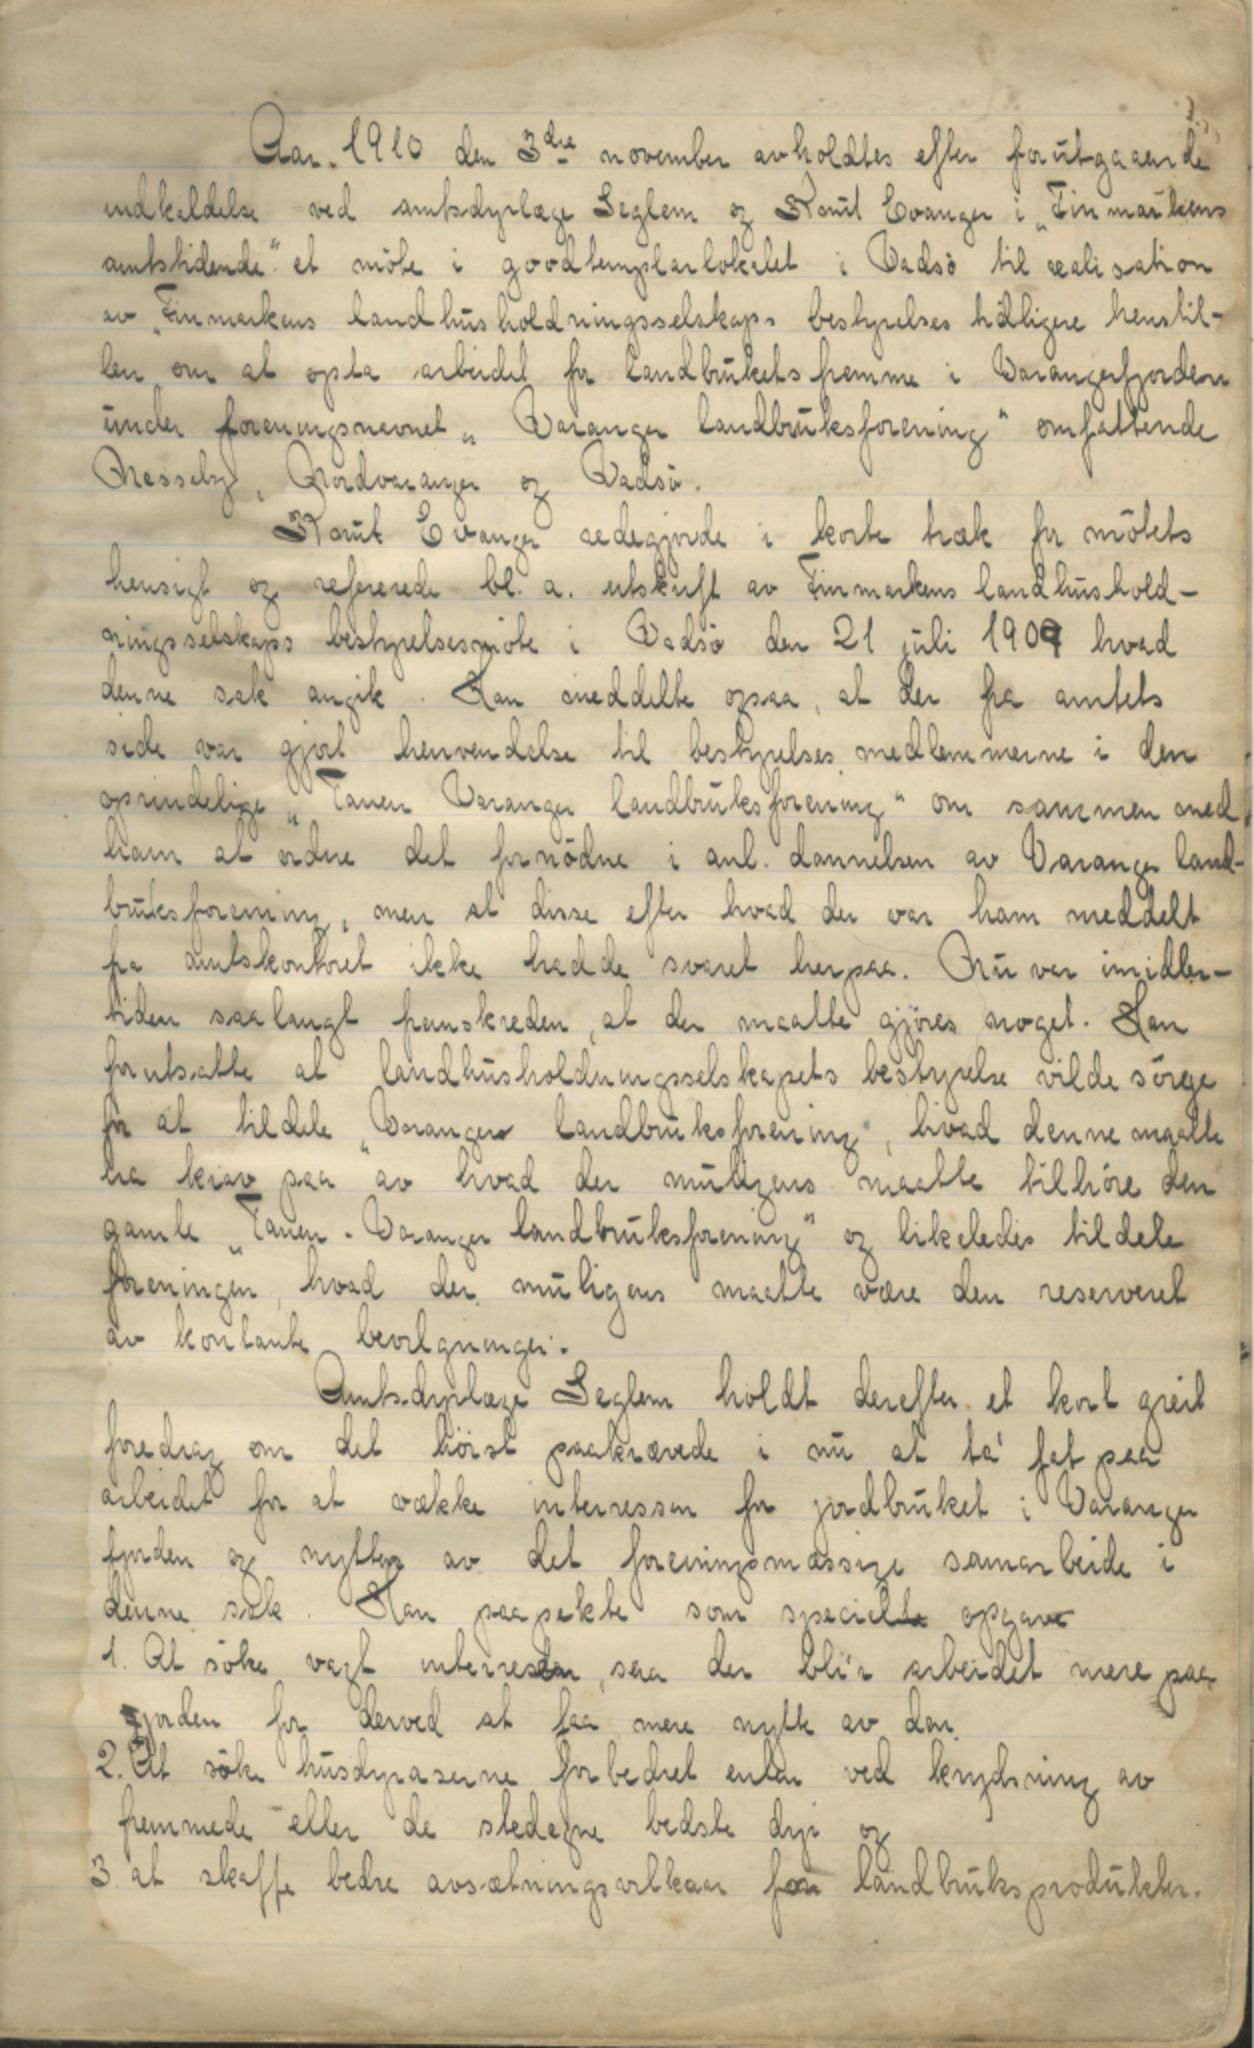 Aar 1910 den 3dre november avholdtes efter forutgaaende
indkaldelse ved amtsdyrlæge Seglem og Knut Evanger i „Finmarkens
amtstidende" et möte i goodtemplarlokalet i Vadsö til realisation
av „Finmarkens landhusholdningsselskaps bestyrelses tidligere henstil-
len om at opta arbeidet for landbrukets fremme i Varangerfjorden
under foreningsnavnet „Varanger landbruksforening" omfattende
Nesseby, Nordvaranger og Vadsö.
Knut Evanger redegjorde i korte træk for mötets
hensigt og refererede bl. a. utskrift av Finmarkens landhushold-
ningsselskaps bestyrelsesmöte i Vadsö den 21 juli 1909 hvad
denne sak angik. Han meddelte ogsaa, at der fra amtets
side var gjort henvendelse til bestyrelsesmedlemmerne i den
oprindelige „Tanen Varanger landbruksforening" om sammen med
ham at ordne det fornödne i anl. dannelsen av Varanger land-
bruksforening, men at disse efter hvad der var ham meddelt
fra amtskontoret ikke hadde svaret herpaa. Nu var imidler-
tiden saa langt fremskreden, at der maatte gjöres noget. Han
forutsatte at landhusholdningsselskapets bestyrelse vilde sörge
for at tildele „Varanger landbruksforening", hvad denne maatte
ha krav paa av hvad der muligens maatte tilhöre den
gamle „Tanen - Varanger landbruksforening" og likeledes tildele
foreningen, hvad der muligens maatte være den reserveret
av kontante bevilgninger.
Amtsdyrlæge Seglem holdt derefter et kort greit
foredrag om det höist paakrævede i nu at ta' fat paa
arbeidet for at vække interessen for jordbruket i Varanger
fjorden og nytten av det foreningsmæssige samarbeide i
denne sak. Han paapekte som specielle opgave
1. At söke vagt interressen, saa der bli'r arbeidet mere paa
jorden for derved at faa mere nytte av den.
2. At söke husdyraserne forbedret enten ved krydsning av
fremmede eller de stedegne bedste dyr og
3. at skaffe bedre avsætningsvilkaar for landbruksprodukter.